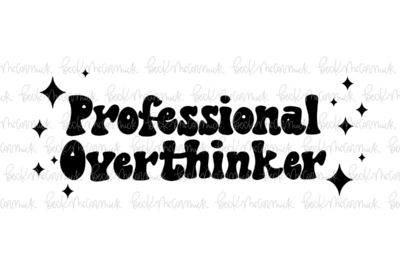 Professional
Overthinker